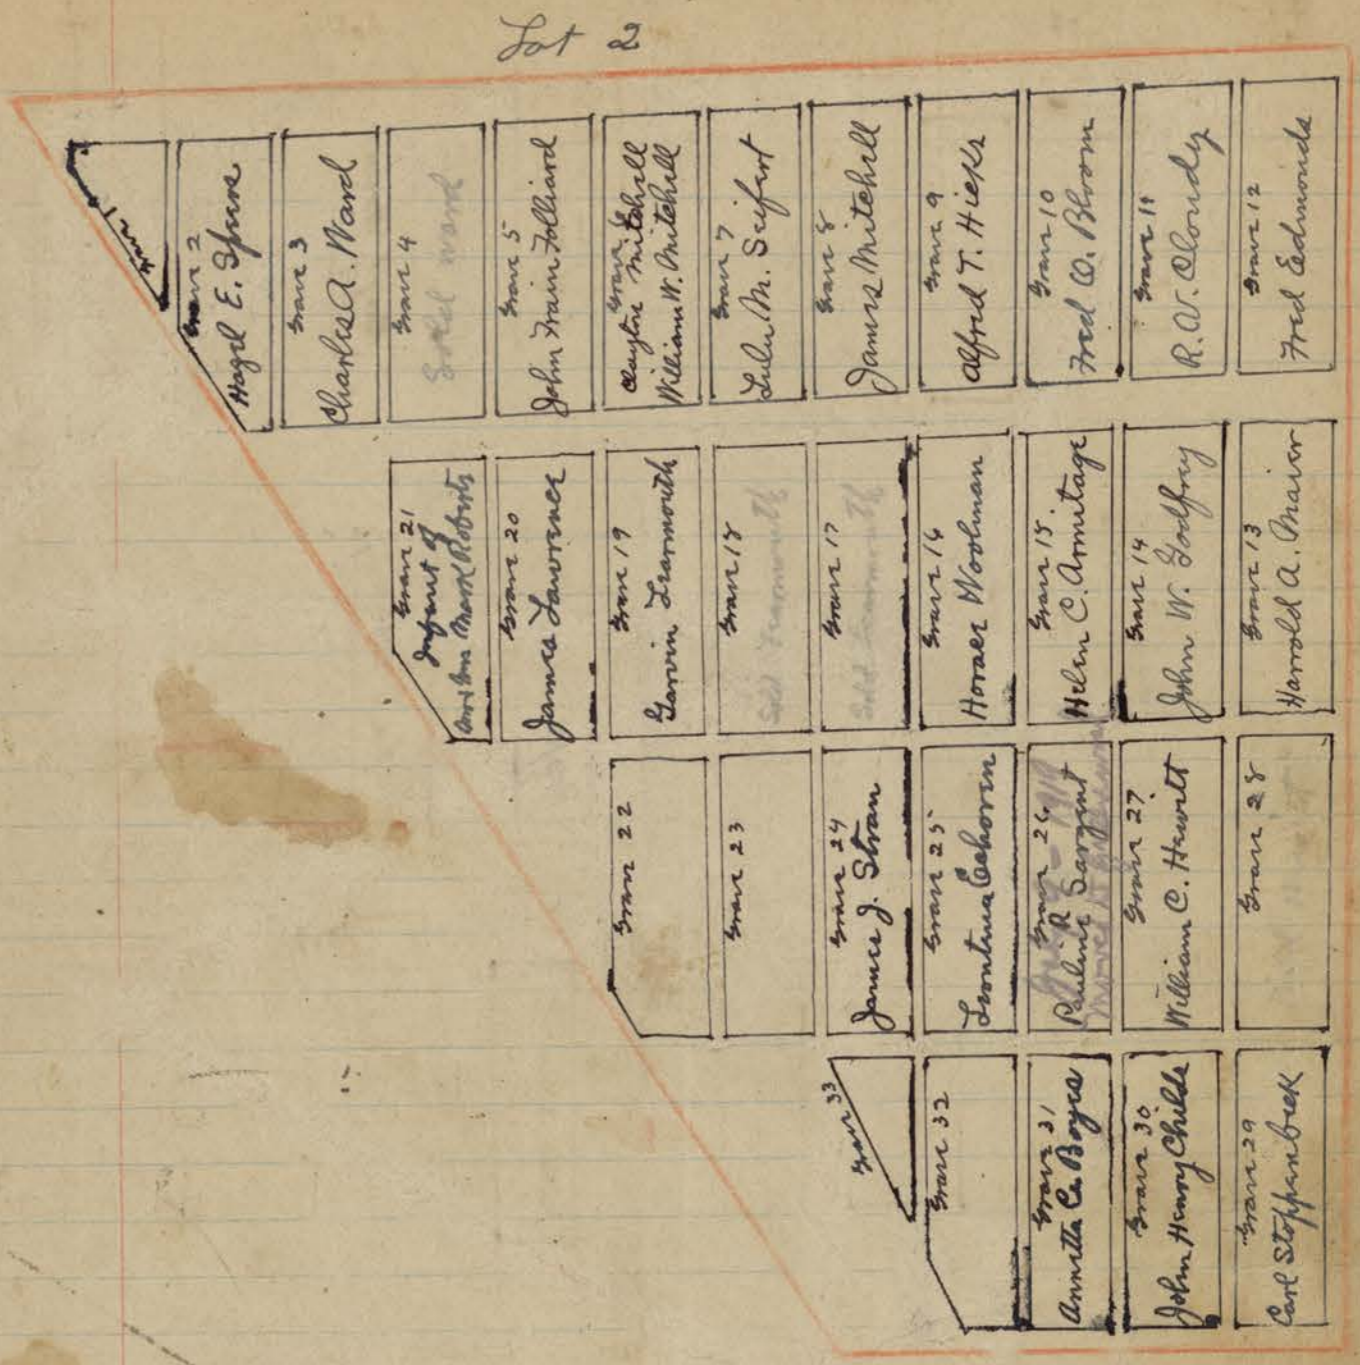 Lot 2
Grave 1
Grave 2
Hazel E.
Grave 3
Charles A. Ward
Grave 4
Sold Ward
Grave 5
John Train Folliard
Grave 6
Clayton Mitchell
William W. Mitchell
Grave 7
Lulu M. Seifert
Grave 8
James Mitchell
Grave 9
Alfred T. Hicks
Grave 10
Fred O. Bloom
Grave 11
R. V. Cloudy
Grave 12
Fred Edmonds
Grave 21
Infant of
Mark Roberts
Grave 20
James Lawrence
Grave 19
Garvin Learmouth
Grave 18
Sold Learmouth
Grave 17
Sold Learmouth
Grave 16
Horace Woolman
Grave 15
Helen C. Armitage
Grave 14
John W. Godfrey
Grave 13
Harrold A. Maior
Grave 22
Grave 23
Grave 24
James J. Stran
Grave 25
Leontina
Grave 26
Pauline R Sargent
Grave 27
William C. Hewitt
Grave 28
Grave 33
Grave 32
Grave 31
Annetta Ca Boyes
Grave 30
John Henry Childs
Grave 29
Carl Stoppenbrek